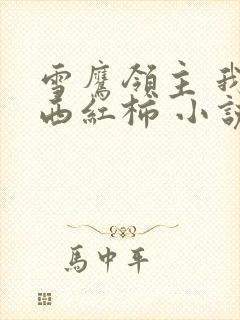 雪鷹領主 我
西紅柿 小說
馬中平